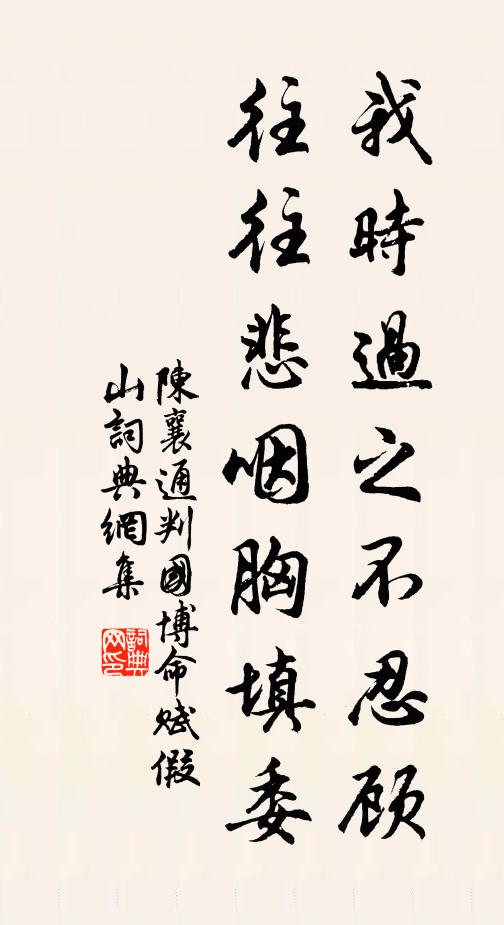 我時過之不忍顾
往往悲咽胸填委
陳襄通判國博命賦假
山詞典網集
詞典
网印